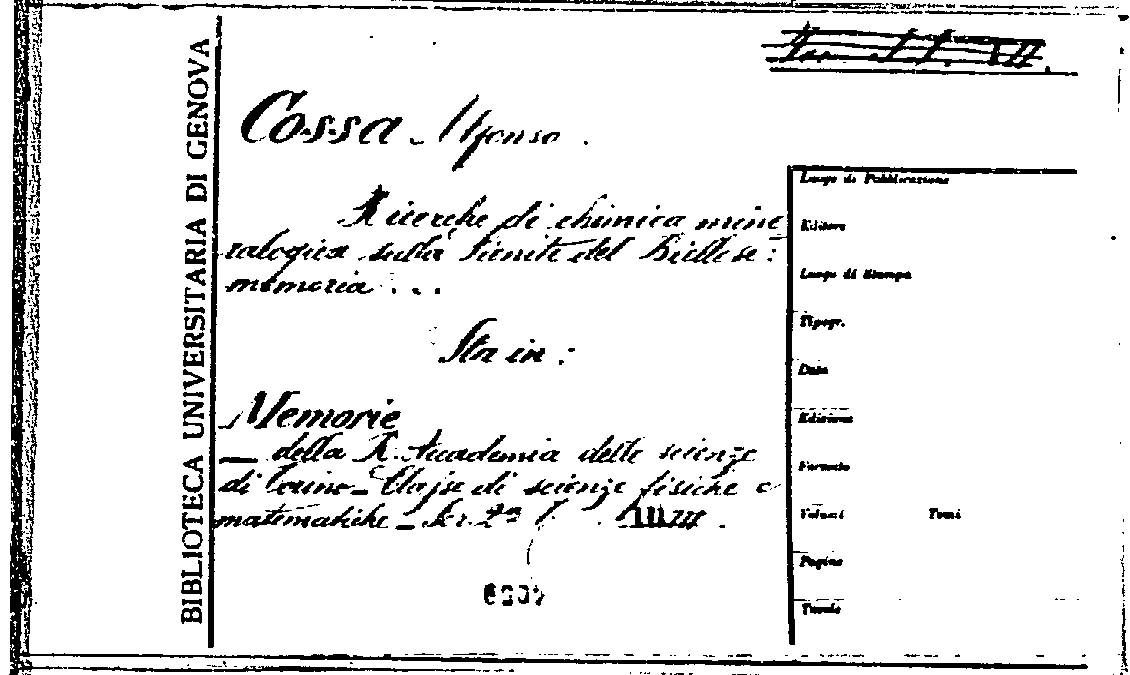 BIBLIOTECA UNIVERSITARIA DI GENOVA
Cossa Alfonso.
Ricerche di chimica mine
ralogica sulla sienite del Biellese:
memoria...
Sta in:
Memorie
— della R. Accademia delle scienze
di Torino - Classe di scienze fisiche e
matematiche - Ser. 2ª T.
Luogo di Pubblicazione
Editore
Luogo di Stampa
Tipogr.
Data
Edizione
Formato
Volumi Tomi
Pagine
Tavole